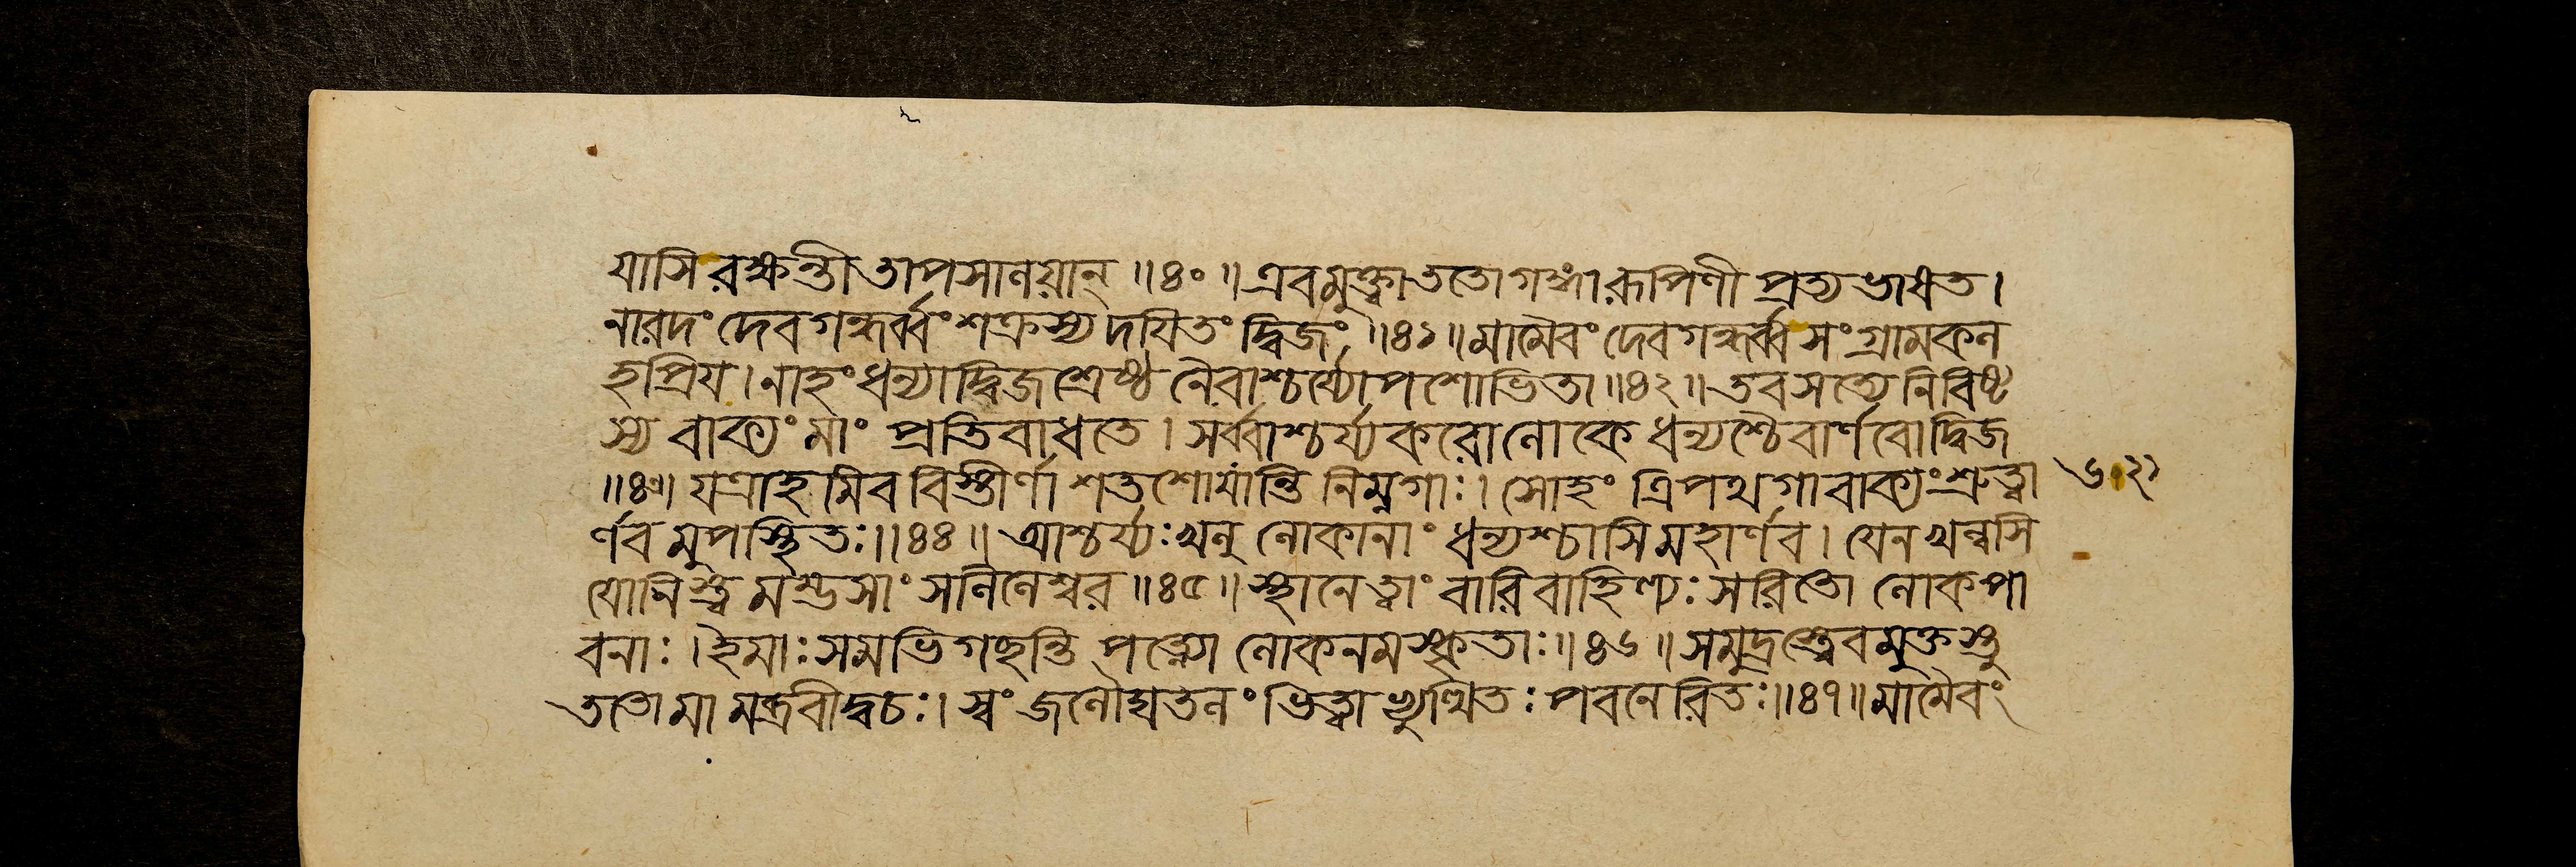 যাসি রক্ষন্তী তাপসানয়ান্ ॥৪০॥ এবমুক্ত্বা ততো গঙ্গা রূপিণী প্রত্যভাষত ।
নারদং দেবগন্ধর্ব্বং শক্রস্য দযিতং দ্বিজং ॥৪১॥ মা মৈবং দেবগন্ধর্ব্ব সংগ্রামকল
হপ্রিয । নাহং ধন্যা দ্বিজশ্রেষ্ঠ নৈবাশ্চর্য্যোপশোভিতা ॥৪২॥ তব সত্যে নিবিষ্ট
স্য বাক্যং মাং প্রতিবাধতে । সর্ব্বাশ্চর্য্যকরো লোকে ধন্যশ্চৈবার্ণবো দ্বিজ
॥৪৩॥ যত্রাহমিব বিস্তীর্ণা শতশো যান্তি নিম্নগাঃ । সোহং ত্রিপথগাবাক্যং শ্রুত্বা
র্ণবমুপস্থিতঃ ॥৪৪॥ আশ্চর্য্যঃ খলু লোকানাং ধন্যশ্চাসি মহার্ণব । যেন খল্বসি
যোনিস্ত্বমম্ভসাং সলিলেশ্বর ॥৪৫॥ স্থানে ত্বাং বারিবাহিণ্যঃ সরিতো লোকপা
বনাঃ । হৈমাঃ সমভিগছন্তি পত্ন্যো লোকনমস্কৃতাঃ ॥৪৬॥ সমুদ্রস্ত্বেবমুক্তস্তু
ততো মামব্রবীদ্বচঃ । স্বং জলৌঘতলং ভিত্বা ব্যুত্থিতঃ পবনেরিতঃ ॥৪৭॥ মা মৈবং